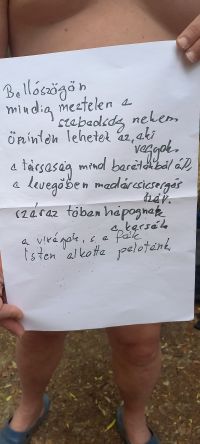 Bellószögön
mindig meztelen a
szabadság nekem
Őszintén lehetek az, aki
vagyok.
a társaság mind barátokból áll,
a levegőben madárcsicsergés
száll.
száraz tóban hápognak
a kacsák
a virágok, s a fák
Isten alkotta palotánk